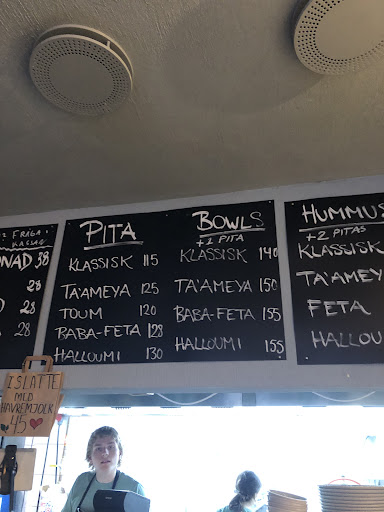 FRÅGA I
KASSAN
NAD 38
28
28
28
PITA
KLASSISK 115
TA'AMEYA 125
TOUM 120
BABA-FETA 128
HALLOUMI 130
BOWLS
+1 PITA
KLASSISK 140
TA'AMEYA 150
BABA-FETA 155
HALLOUMI 155
HUMMUS
+2 PITAS
KLASSISK
TA'AMEY
FETA
HALLOU
ISLATTE
MED
HAVREMJÖLK
45